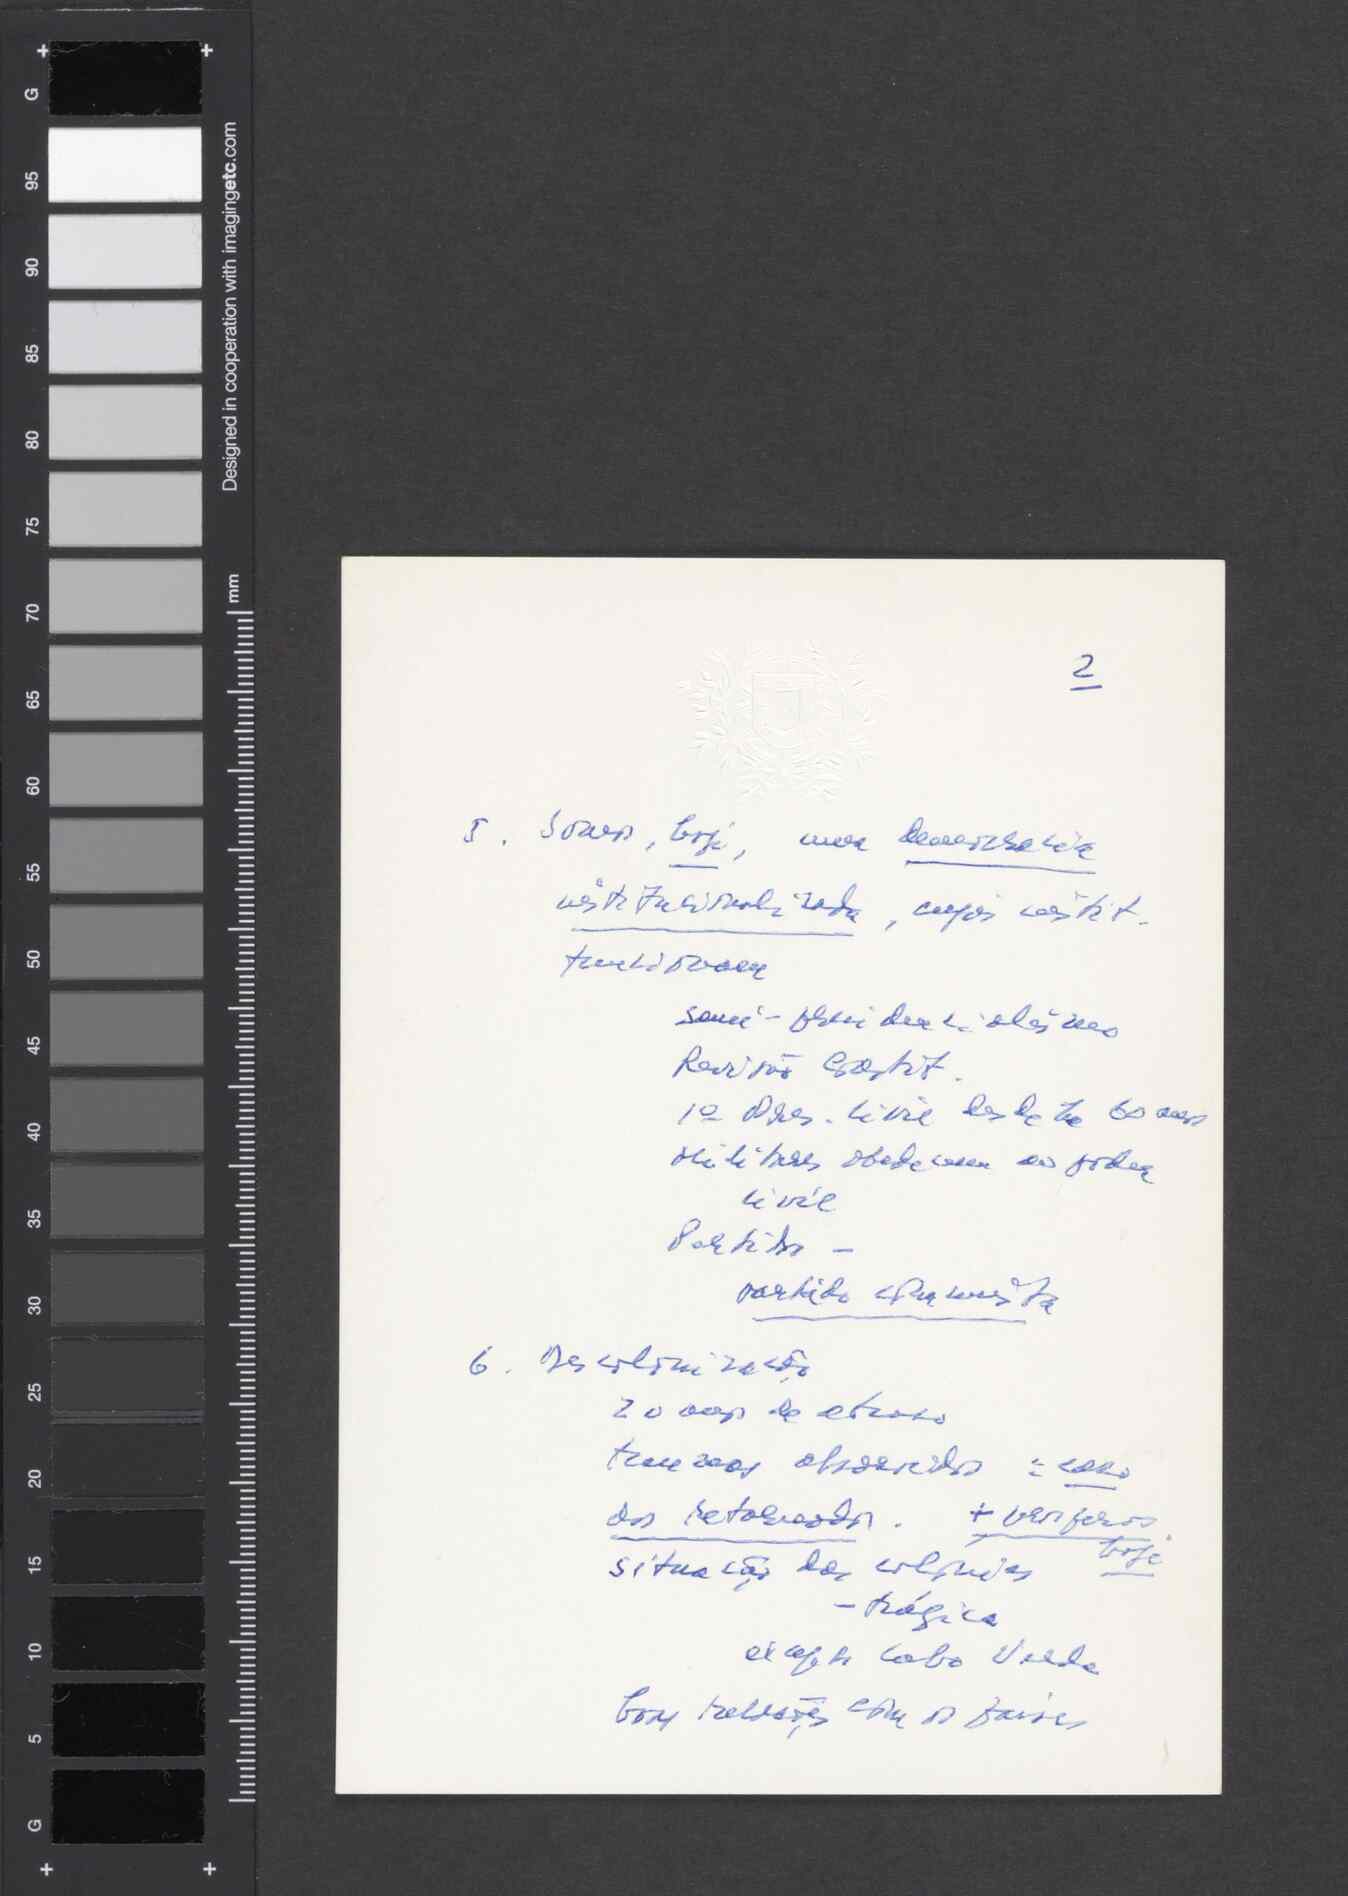 2
5. Somos, hoje, uma democracia
institucionalizada, cujas instit.
funcionam
semi-presidencialismo
Revisão Constit.
1º Pres. civil desde há 60 anos
Militares obedecem ao poder
civil
Partidos -
partido comunista
6. Descolonização
20 anos de atraso
traumas absorvidos = caso
dos retornados. + prósperos
hoje
situação das colónias
- trágica
excepto Cabo Verde
boas relações com os países
G
95
90
85
80
75
70
65
60
55
50
45
40
35
30
25
20
15
10
5
G
Designed in cooperation with imagingetc.com
mm